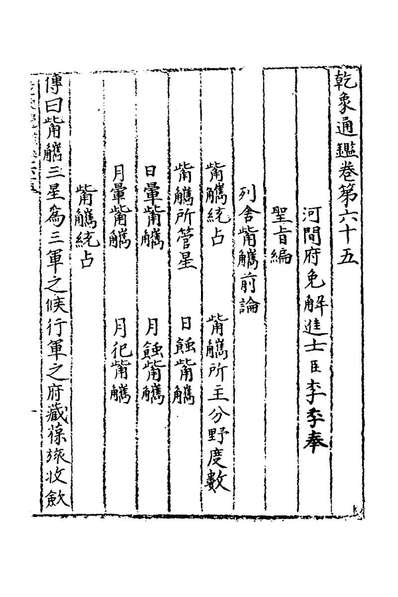 乾象通鑑卷第六十五
河間府免解進士臣李季奉
聖旨編
列舍觜觿前論
觜觿統占　觜觿所主分野度數
觜觿所管星　日蝕觜觿
日暈觜觿　月蝕觜觿
月暈觜觿　月犯觜觿
觜觿統占
傳曰觜觿三星為三軍之候行軍之府藏葆旅收斂